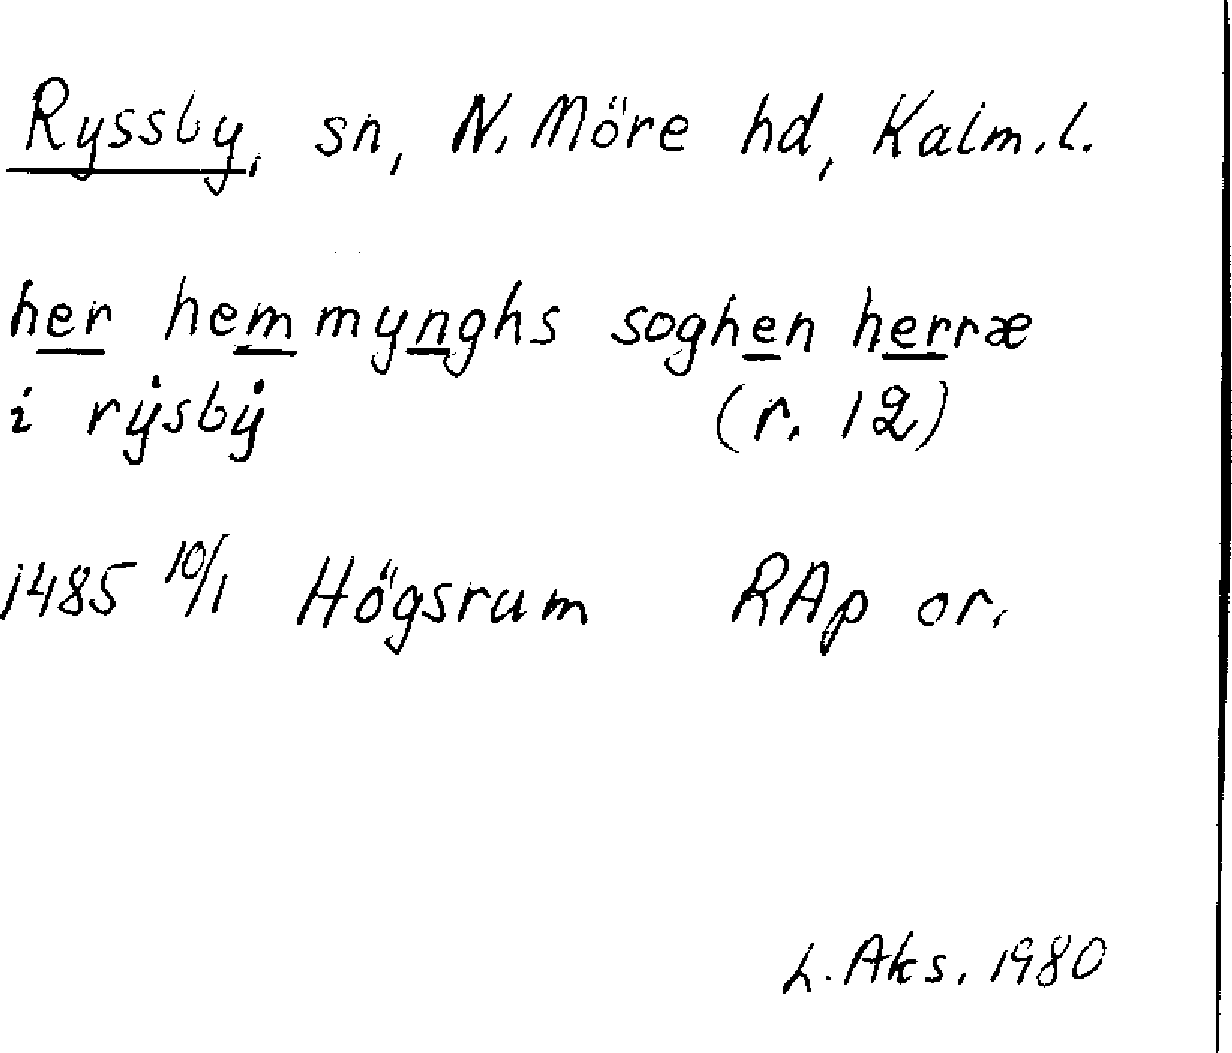 Ryssby, sn, N. Möre hd, Kalm. L.
her hemmynghs soghen herræ
i rẏsbẏ (r. 12)
1485 10/1 Högsrum RAp or.
L. Aks. 1980